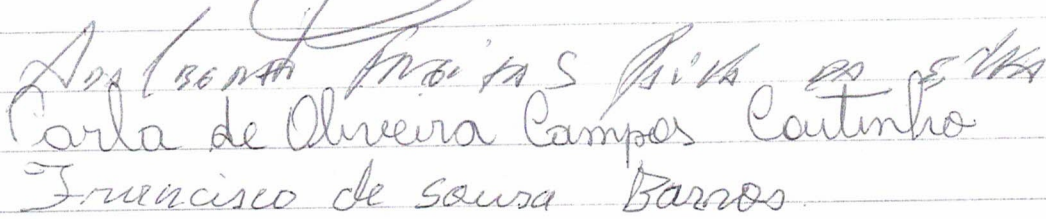 Adalberto Freitas Paiva da Silva
Carla de Oliveira Campos Coutinho
Francisco de Sousa Barros.